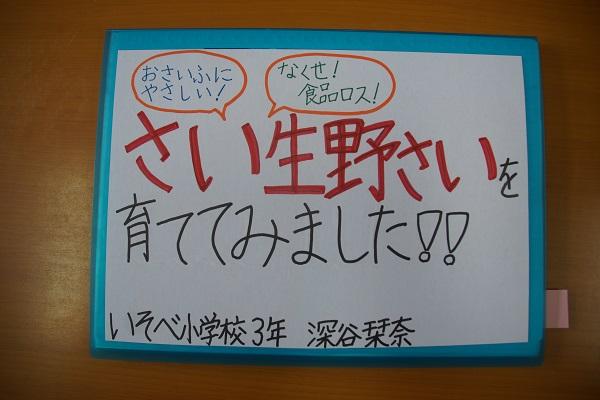 おさいふに
やさしい!
なくせ!
食品ロス!
さい生野さいを
育ててみました!!
いそべ小学校3年 深谷栞奈